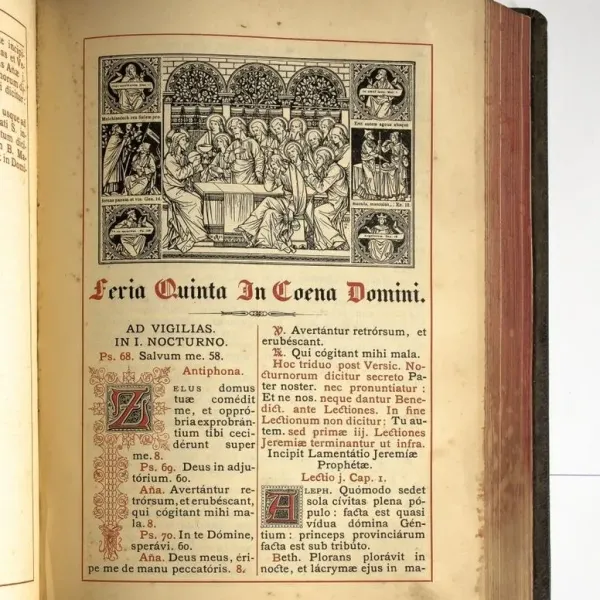 Melchisedech rex Salem pro-
ferens panem et vin. Gen. 14.
Erit autem agnus absque
macula, masculus... Ex. 12.
Feria Quinta In Coena Domini.
AD VIGILIAS.
IN I. NOCTURNO.
Ps. 68. Salvum me. 58.
Antiphona.
ZELUS domus
tuæ comédit
me, et oppró-
bria exprobrán-
tium tibi ceci-
dérunt super
me. 8.
Ps. 69. Deus in adju-
tórium. 60.
Aña. Avertántur re-
trórsum, et erubéscant,
qui cógitant mihi ma-
la. 8.
Ps. 70. In te Dómine,
sperávi. 60.
Aña. Deus meus, éri-
pe me de manu peccatóris. 8.
℣. Avertántur retrórsum, et
erubéscant.
℟. Qui cógitant mihi mala.
Hoc triduo post Versic. No-
cturnorum dicitur secreto Pa-
ter noster. nec pronuntiatur :
Et ne nos. neque dantur Bene-
dict. ante Lectiones. In fine
Lectionum non dicitur: Tu au-
tem. sed primæ iij. Lectiones
Jeremiæ terminantur ut infra.
Incipit Lamentátio Jeremíæ
Prophétæ.
Lectio j. Cap. 1.
ALEPH. Quómodo sedet
sola cívitas plena pó-
pulo : facta est quasi
vídua dómina Gén-
tium : princeps provinciárum
facta est sub tribúto.
Beth. Plorans plorávit in
nocte, et lácrymæ ejus in ma-